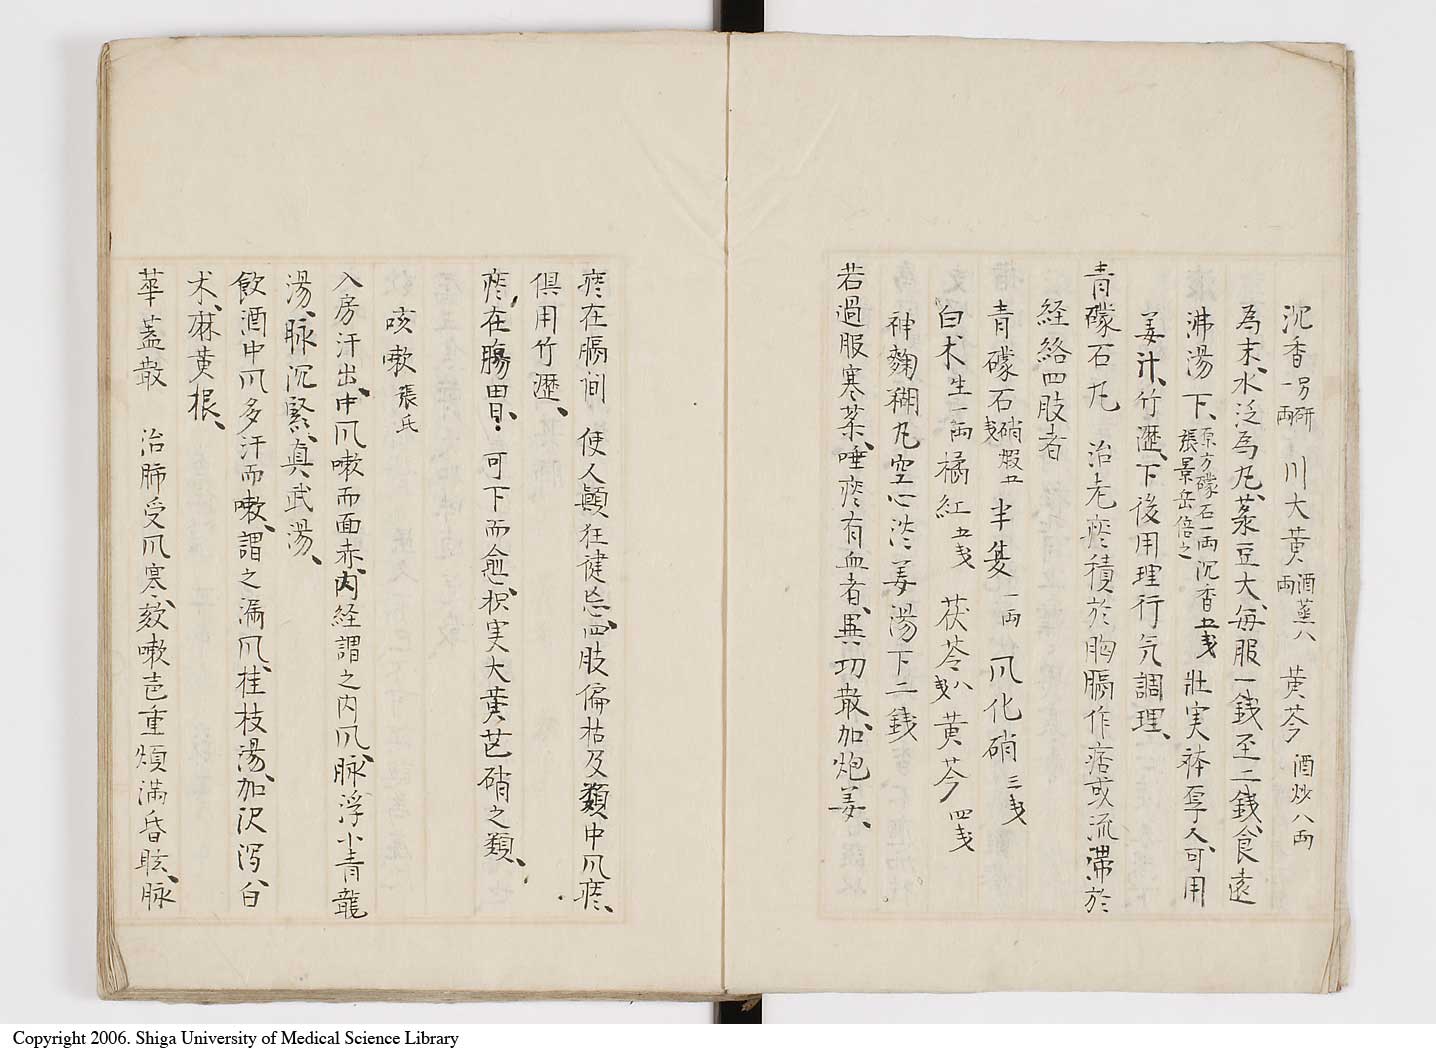 沈香一両 另研 川大黄酒蒸八両 黄芩酒炒八両
為末、水泛為丸、菉豆大、毎服一銭至二銭、食遠
沸湯下、原方礞石一両沉香五戋張景岳倍之 壮実体厚人、可用
姜汁、竹瀝、下後用理行気調理、
青礞石丸 治老痰積於胸膈作痞或流滞於
経絡四肢者
青礞石硝煅五戋 半夏一両 爪化硝三戋
白朮生一両 橘紅五戋 茯苓八戋 黄芩四戋
神麹糊丸空心淡姜湯下二銭
若過服寒薬、唾痰有血者、異功散、加炮姜、
痰在膈間 使人顛狂健忘、四肢偏枯及類中爪痰、
倶用竹瀝、
痰在腸胃、可下而愈、枳実大黄芒硝之類、
咳嗽 張氏
入房汗出、中爪嗽而面赤、内経謂之内爪、脉浮小青龍
湯、脉沉緊、真武湯、
飲酒中爪多汗而嗽、謂之漏爪、桂枝湯、加沢瀉、白
朮、麻黄根、
華蓋散 治肺受爪寒、欬嗽声重煩満昏眩、脉
Copyright 2006. Shiga University of Medical Science Library